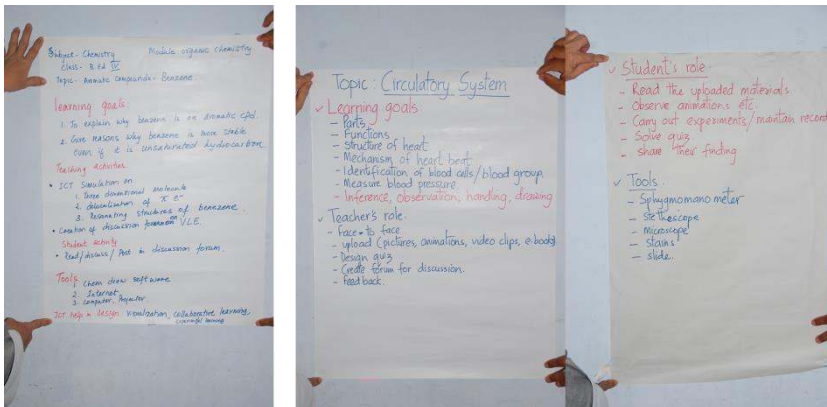 Subject - Chemistry Module organic chemistry
Class - B.Ed IV
Topic - Aromatic Compounds - Benzene
Learning goals:
1. To explain why benzene is an aromatic cpd.
2. Give reasons why benzene is more stable
even if it is unsaturated hydrocarbon.
Teaching activities
• ICT Simulation on
1. Three dimentional molecule
2. delocalization of π e⁻
3. Resonating structures of benzene.
• Creation of discussion on VLE.
Student activity
• Read/discuss/Post in discussion forum.
Tools
1. Chem draw software
2. Internet
3. Computer, Projector
ICT help in design visualization, collaborative learning,
learning
Topic : Circulatory System
✓ Learning goals
- Parts
- Functions
- Structure of heart
- Mechanism of heart beat
- Identification of blood cells/blood group.
- Measure blood pressure.
- Inference, observation, handling, drawing
✓ Teacher's role.
- Face-to face
- upload (pictures, animations, video clips, e-books)
- Design quiz
- Create forum for discussion.
- feed back.
✓ Student's role.
- Read the uploaded materials.
- Observe animations etc.
- Carry out experiments/maintain record
- Solve quiz
- share their finding
✓ Tools.
- Sphygmomano meter
- Stethescope
- microscope
- stains
- slide.